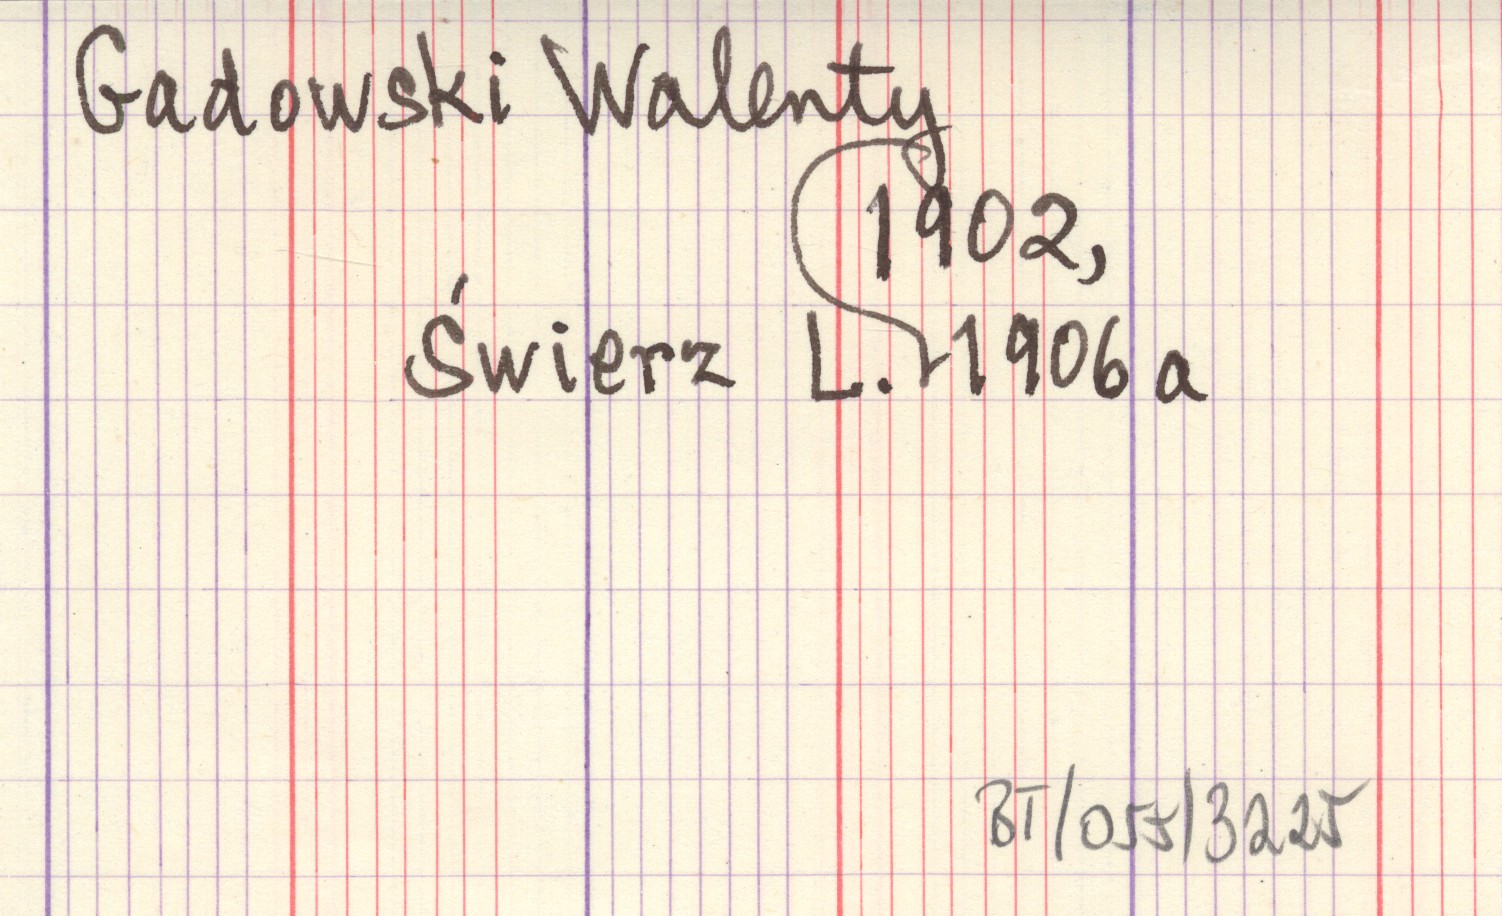 Gadowski Walenty
1902,
Świerz L. 1906a
BT/055/3225